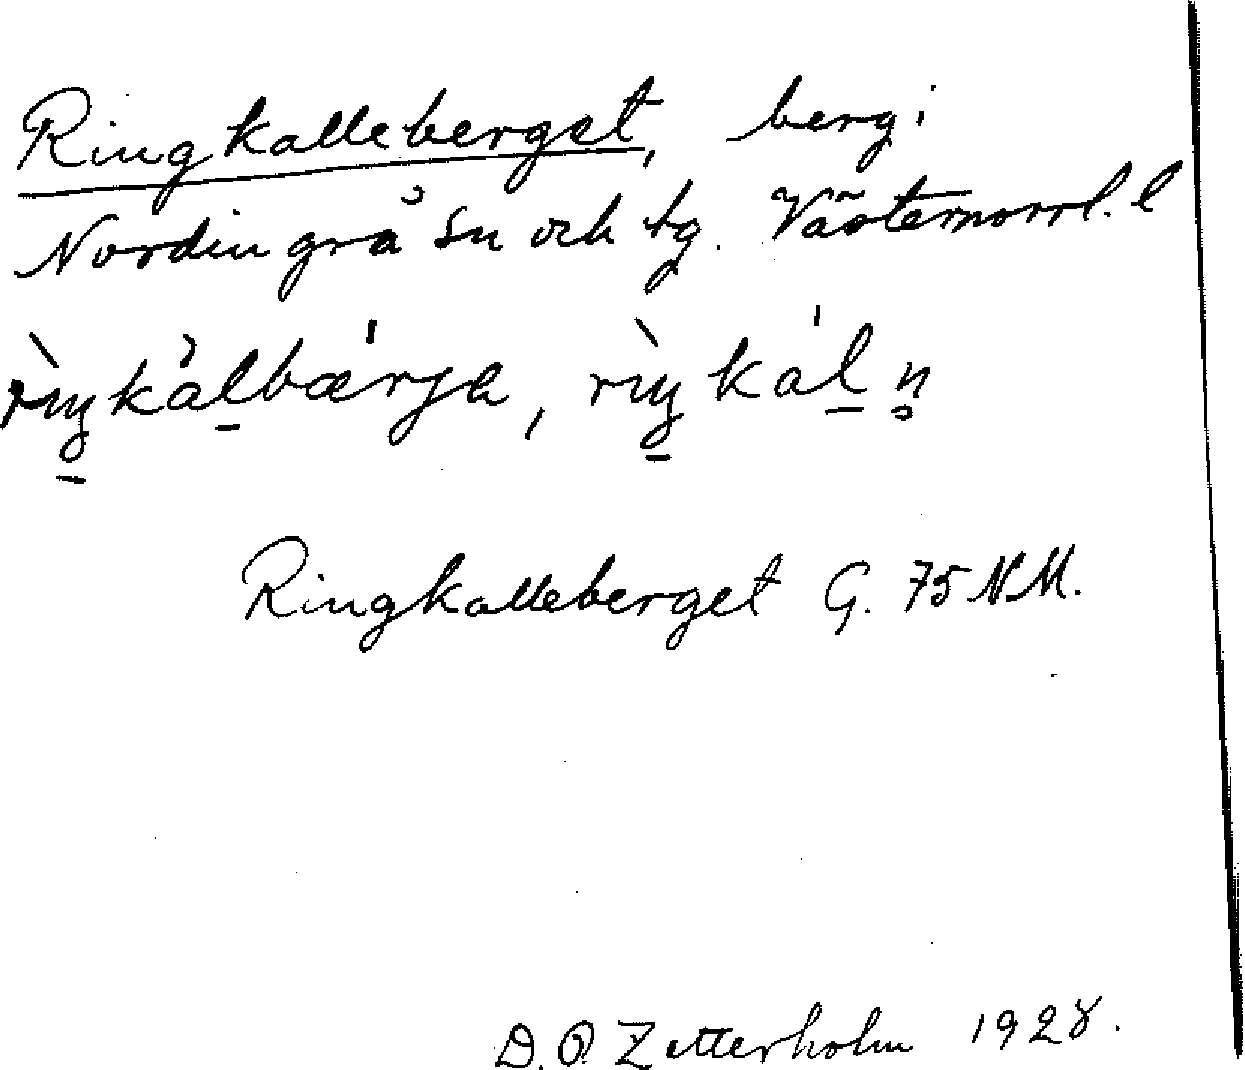 Ringkalleberget, berg i
Nordingrå sn och tg. Västernorrl. l
rìŋkàlbǽrja, rìŋkálṇ
Ringkalleberget G. 75 NM.
D. O Zetterholm 1928.